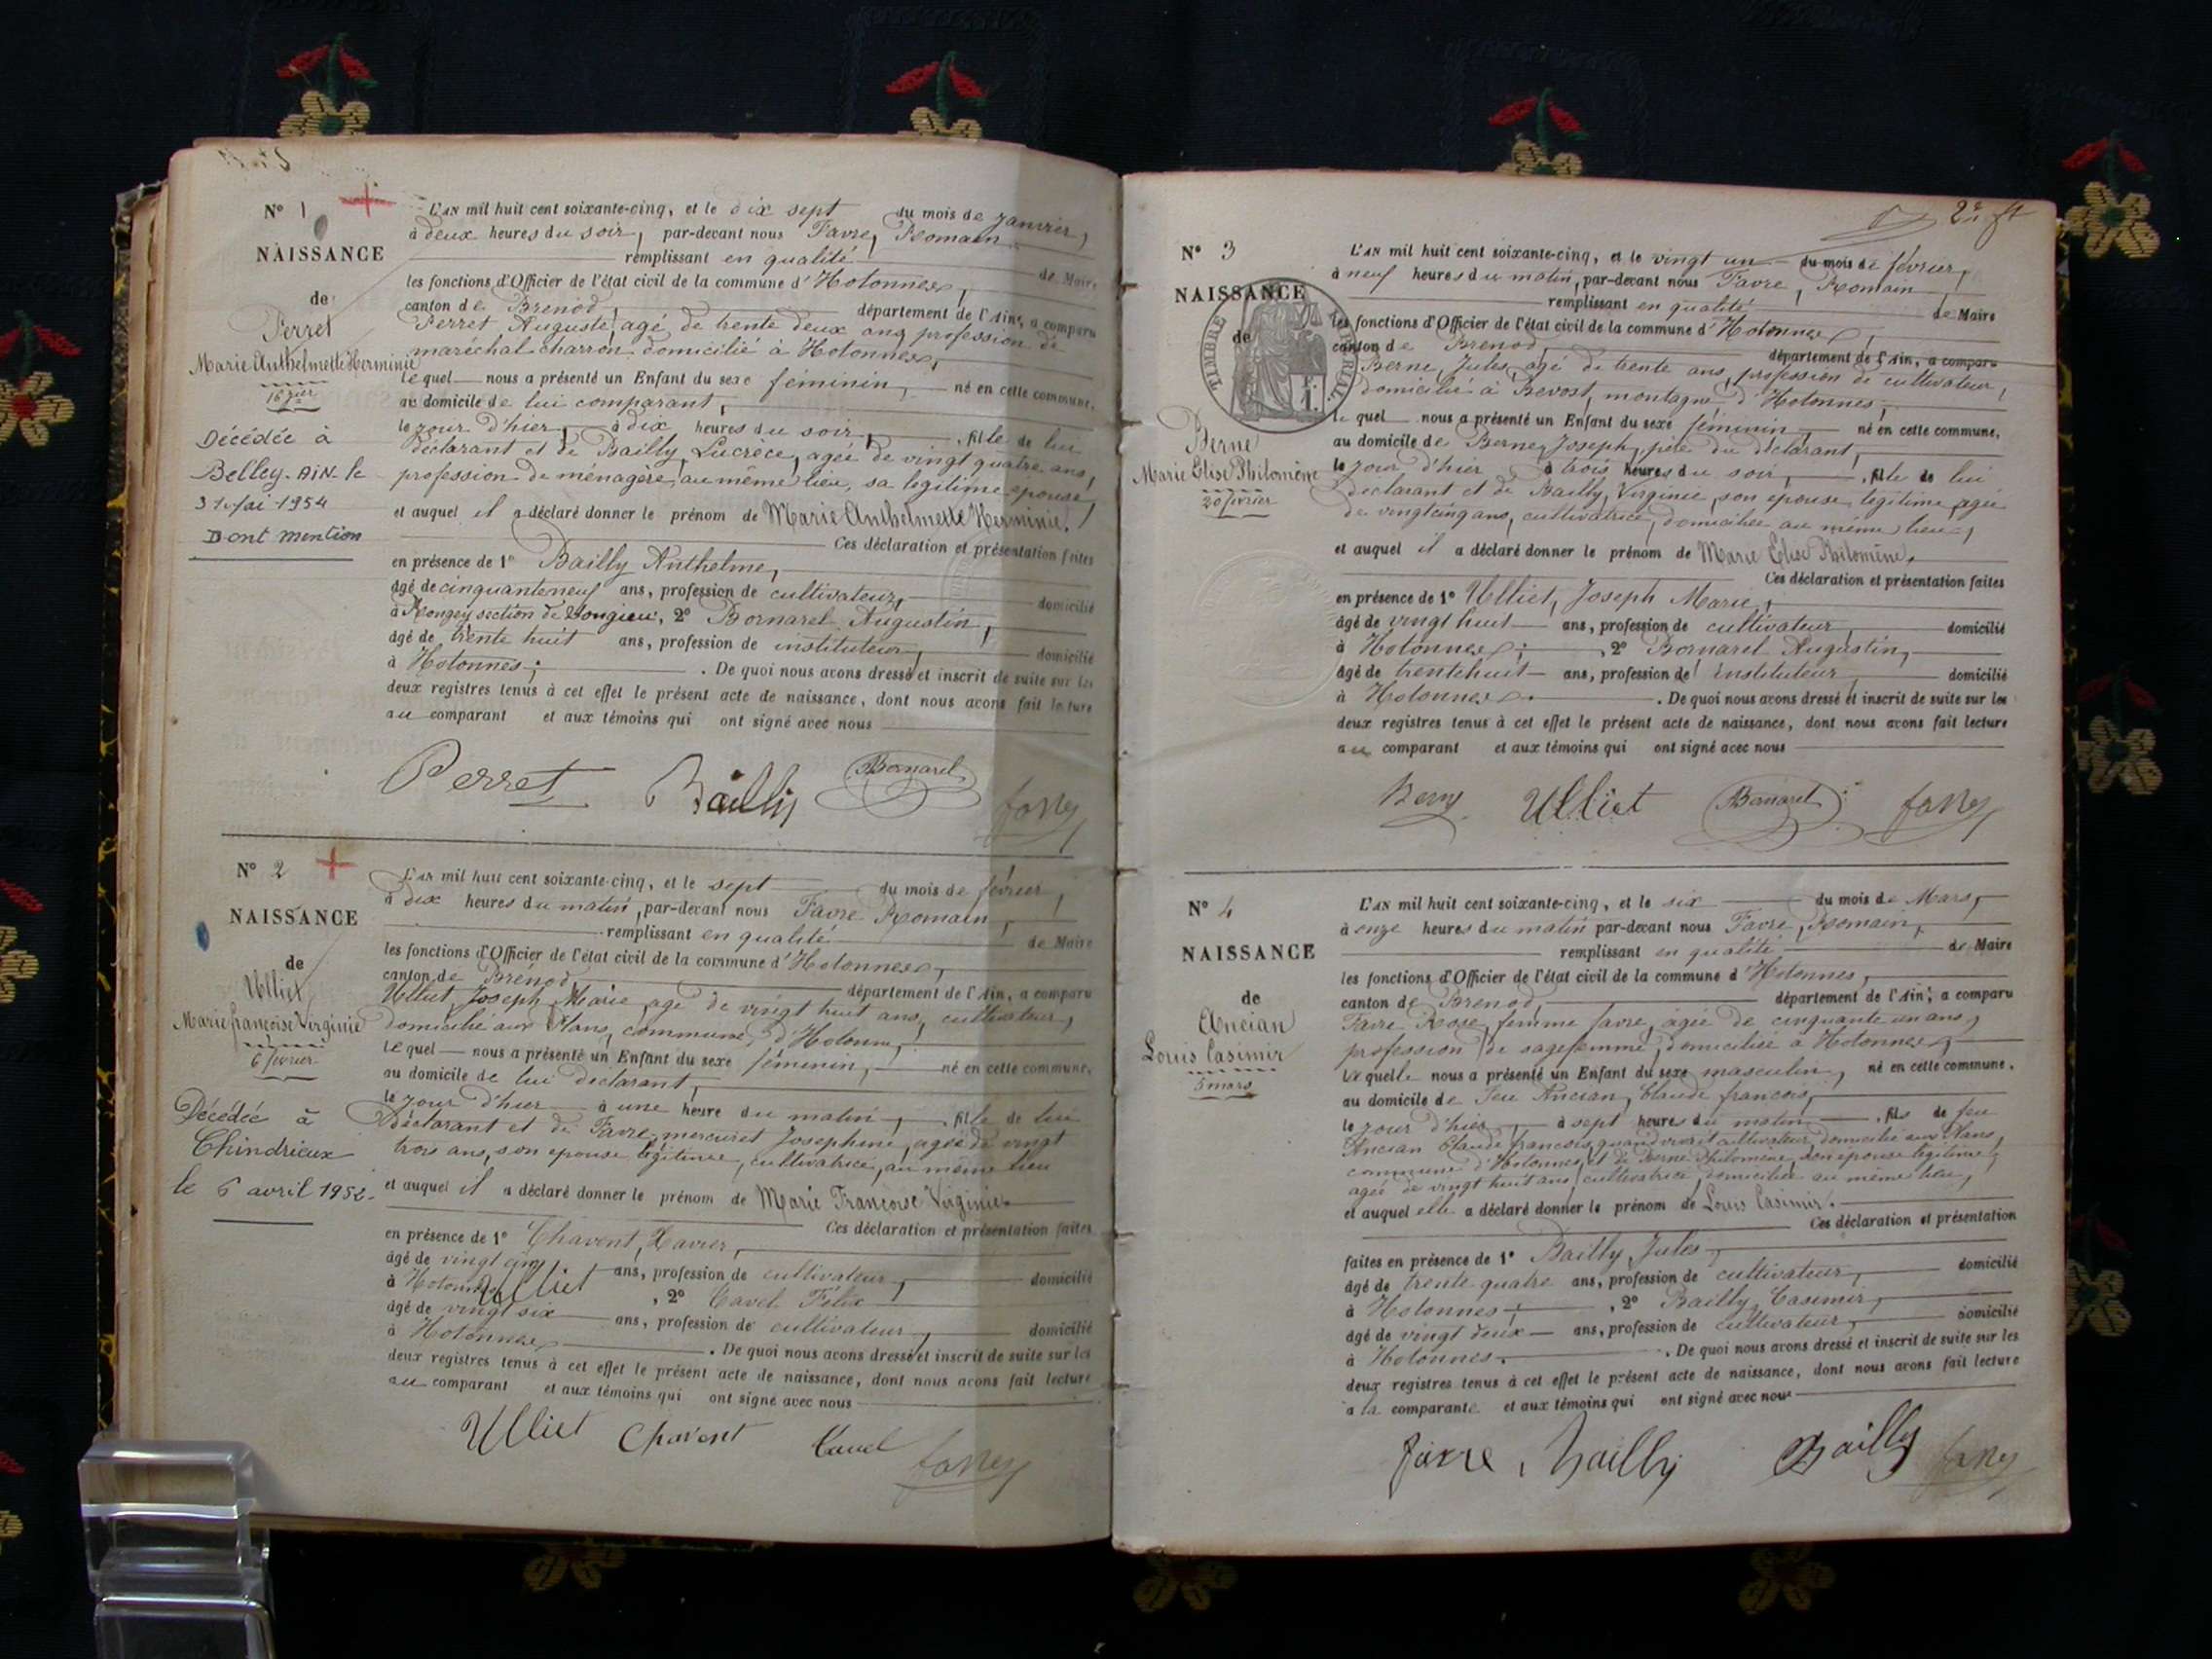 N° 1
NAISSANCE
de
Perret
Marie Anthelmette Herminie
16 Jer
Décédée à
Belley. AIN. le
31 Mai 1954
Dont mention
L'AN mil huit cent soixante-cinq, et le dix sept du mois de Janvier,
à deux heures du soir, par-devant nous Favre, Romain
remplissant en qualité de Maire
les fonctions d'Officier de l'état civil de la commune d'Hotonnes,
canton de Brenod, département de l'Ain, a comparu
Perret Auguste, agé de trente deux ans, profession de
maréchal charron domicilié à Hotonnes,
lequel nous a présenté un Enfant du sexe féminin, né en cette commune,
au domicile de lui comparant,
le jour d'hier, à dix heures du soir, fille de lui
déclarant et de Bailly Lucrèce, agée de vingt quatre ans,
profession de ménagère, au même lieu, sa légitime épouse,
et auquel il a déclaré donner le prénom de Marie Anthelmette Herminie.
Ces déclaration et présentation faites
en présence de 1° Bailly Anthelme,
âgé de cinquanteneuf ans, profession de cultivateur, domicilié
à Rongey section de Songieu, 2° Bornarel Augustin,
âgé de trente huit ans, profession de instituteur, domicilié
à Hotonnes; . De quoi nous avons dressé et inscrit de suite sur les
deux registres tenus à cet effet le présent acte de naissance, dont nous avons fait lecture
au comparant et aux témoins qui ont signé avec nous
Perret Bailly Bornarel
N° 2
NAISSANCE
de
Ulliet
Marie françoise Virginie
6 février
Décédée à
Chindrieux
le 6 avril 1952.
L'AN mil huit cent soixante-cinq, et le sept du mois de février,
à dix heures du matin, par-devant nous Favre Romain,
remplissant en qualité de Maire
les fonctions d'Officier de l'état civil de la commune d'Hotonnes,
canton de Brénod, département de l'Ain, a comparu
Ulliet, Joseph Marie, agé de vingt huit ans, cultivateur,
domicilié aux Plans, commune d'Hotonnes,
lequel nous a présenté un Enfant du sexe féminin, né en cette commune,
au domicile de lui declarant,
le jour d'hier à une heure du matin, fille de lui
déclarant et de Favre-mercuret Josephine, agée de vingt
trois ans, son epouse légitime, cultivatrice, au même lieu
et auquel il a déclaré donner le prénom de Marie Françoise Virginie.
Ces déclaration et présentation faites
en présence de 1° Chavent, Xavier,
âgé de vingt cinq ans, profession de cultivateur, domicilié
à Hotonnes Ulliet, 2° Cavel Félix
âgé de vingt six ans, profession de cultivateur, domicilié
à Hotonnes . De quoi nous avons dressé et inscrit de suite sur les
deux registres tenus à cet effet le présent acte de naissance, dont nous avons fait lecture
au comparant et aux témoins qui ont signé avec nous
Ulliet Chavent Cavel
N° 3
NAISSANCE
de
TIMBRE IMPÉRIAL.
Berne
Marie Elise Philomène
20 février
L'AN mil huit cent soixante-cinq, et le vingt un du mois de février,
à neuf heures du matin, par-devant nous Favre, Romain
remplissant en qualité de Maire
les fonctions d'Officier de l'état civil de la commune d'Hotonnes,
canton de Brenod, département de l'Ain, a comparu
Berne, Jules, agé de trente ans, profession de cultivateur,
domicilié à Bevost, montagne d'Hotonnes,
lequel nous a présenté un Enfant du sexe féminin, né en cette commune,
au domicile de Berne, Joseph, père du déclarant,
le jour d'hier à trois heures du soir, fille de lui
déclarant et de Bailly, Virginie, son épouse légitime, agée
de vingtcinq ans, cultivatrice, domiciliée au même lieu,
et auquel il a déclaré donner le prénom de Marie Elise Philomène.
Ces déclaration et présentation faites
en présence de 1° Ulliet, Joseph Marie,
âgé de vingt huit ans, profession de cultivateur, domicilié
à Hotonnes; , 2° Bornarel Augustin,
âgé de trentehuit ans, profession de instituteur, domicilié
à Hotonnes. . De quoi nous avons dressé et inscrit de suite sur les
deux registres tenus à cet effet le présent acte de naissance, dont nous avons fait lecture
au comparant et aux témoins qui ont signé avec nous
Ulliet Bornarel
N° 4
NAISSANCE
de
Ancian
Louis Casimir
5 mars
L'AN mil huit cent soixante-cinq, et le six du mois de Mars,
à onze heures du matin par-devant nous Favre, Romain,
remplissant en qualité de Maire
les fonctions d'Officier de l'état civil de la commune d'Hotonnes,
canton de Brenod, département de l'Ain, a comparu
Favre Rose, femme favre, agée de cinquante un ans,
profession de sagefemme, domiciliée à Hotonnes,
laquelle nous a présenté un Enfant du sexe masculin, né en cette commune,
au domicile de feu Ancian, Claude françois,
le jour d'hier, à sept heures du matin, fils de feu
Ancian Claude françois, quand vivait cultivateur, domicilié aux Plans,
commune d'Hotonnes, et de Berne Philomène, son epouse légitime,
agée de vingt huit ans, cultivatrice, domiciliée au même lieu,
et auquel elle a déclaré donner le prénom de Louis Casimir.
Ces déclaration et présentation
faites en présence de 1° Bailly, Jules,
âgé de trente quatre ans, profession de cultivateur, domicilié
à Hotonnes; , 2° Bailly, Casimir,
âgé de vingt deux ans, profession de cultivateur, domicilié
à Hotonnes. . De quoi nous avons dressé et inscrit de suite sur les
deux registres tenus à cet effet le présent acte de naissance, dont nous avons fait lecture
à la comparante et aux témoins qui ont signé avec nous
favre, Bailly Bailly